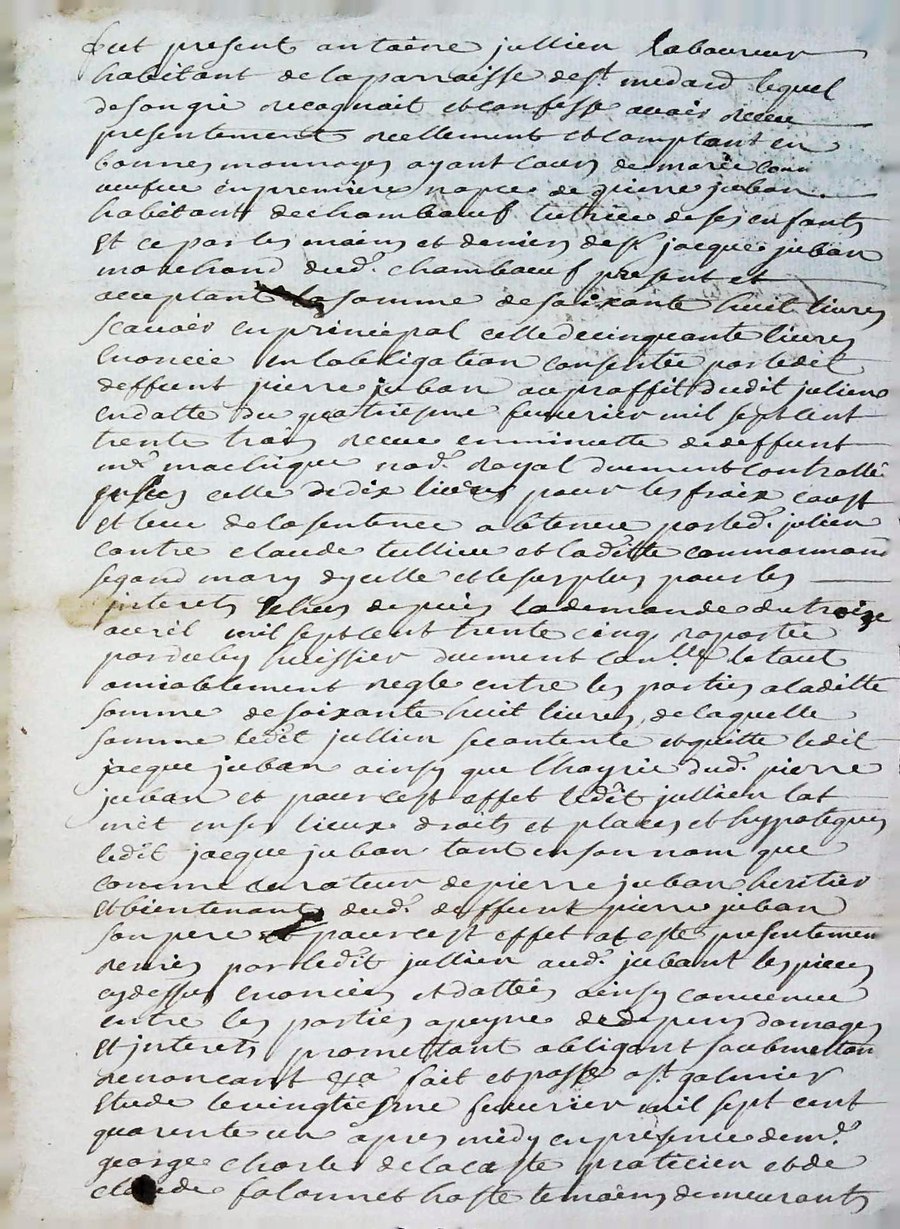 fut present antoène jullien laboureur
habitant de la parroisse de st medard lequel
de son gré recognait et confesse avoir receu
presentement reellement et comptant en
bonnes monnoyes ayant cours de marie
veufve en premieres nopces de pierre juban
habitant de chambœuf tutrice de ses enfants
et ce par les mains et deniers de sr jacque juban
marchand dudt chambœuf present et
acceptant la somme de soixante huit livres
scavoir en principal celle de cinquante livres
enoncée en lobligation consentie par ledit
deffunt pierre juban au proffit dudit julien
en datte du quatriesme fevrier mil sept cent
trente trois receue en minutte du deffunt
me not royal duement controllé
celle de dix livres pour les fraix
et de la sentence obtenue par ledt julien
contre claude tullieu et laditte
segond mary dycelle et le surplus pour les
interets depuis la demande du treize
avril mil sept cent trente cinq raportée
par huissier duement conlle le tout
amiablement reglé entre les parties a laditte
somme de soixante huit livres, de laquelle
somme ledit jullien se contente et quitte ledit
jacque juban ainsy que lhoyrie dudt pierre
juban et pour cest effet ledit jullien lat
mit en ses lieux droits et places et hypoteques
ledit jacque juban tant en son nom que
comme curateur de pierre juban heritier
et bientenant dudt deffunt pierre juban
son pere et pour cest effet at esté presentemen
remis par ledit jullien audt jubant les pieces
cy dessus enoncées et dattées ainsy convenue
entre les parties a peyne de depens domages
et interets promettant obligant soubmettant
renoncant &a fait et passé a st galmier
etude le vingtiesme fevrier mil sept cent
quarente un apres midy en presence de mre
george charles de la coste praticien et de
claude falconnet hoste temoins demeurants